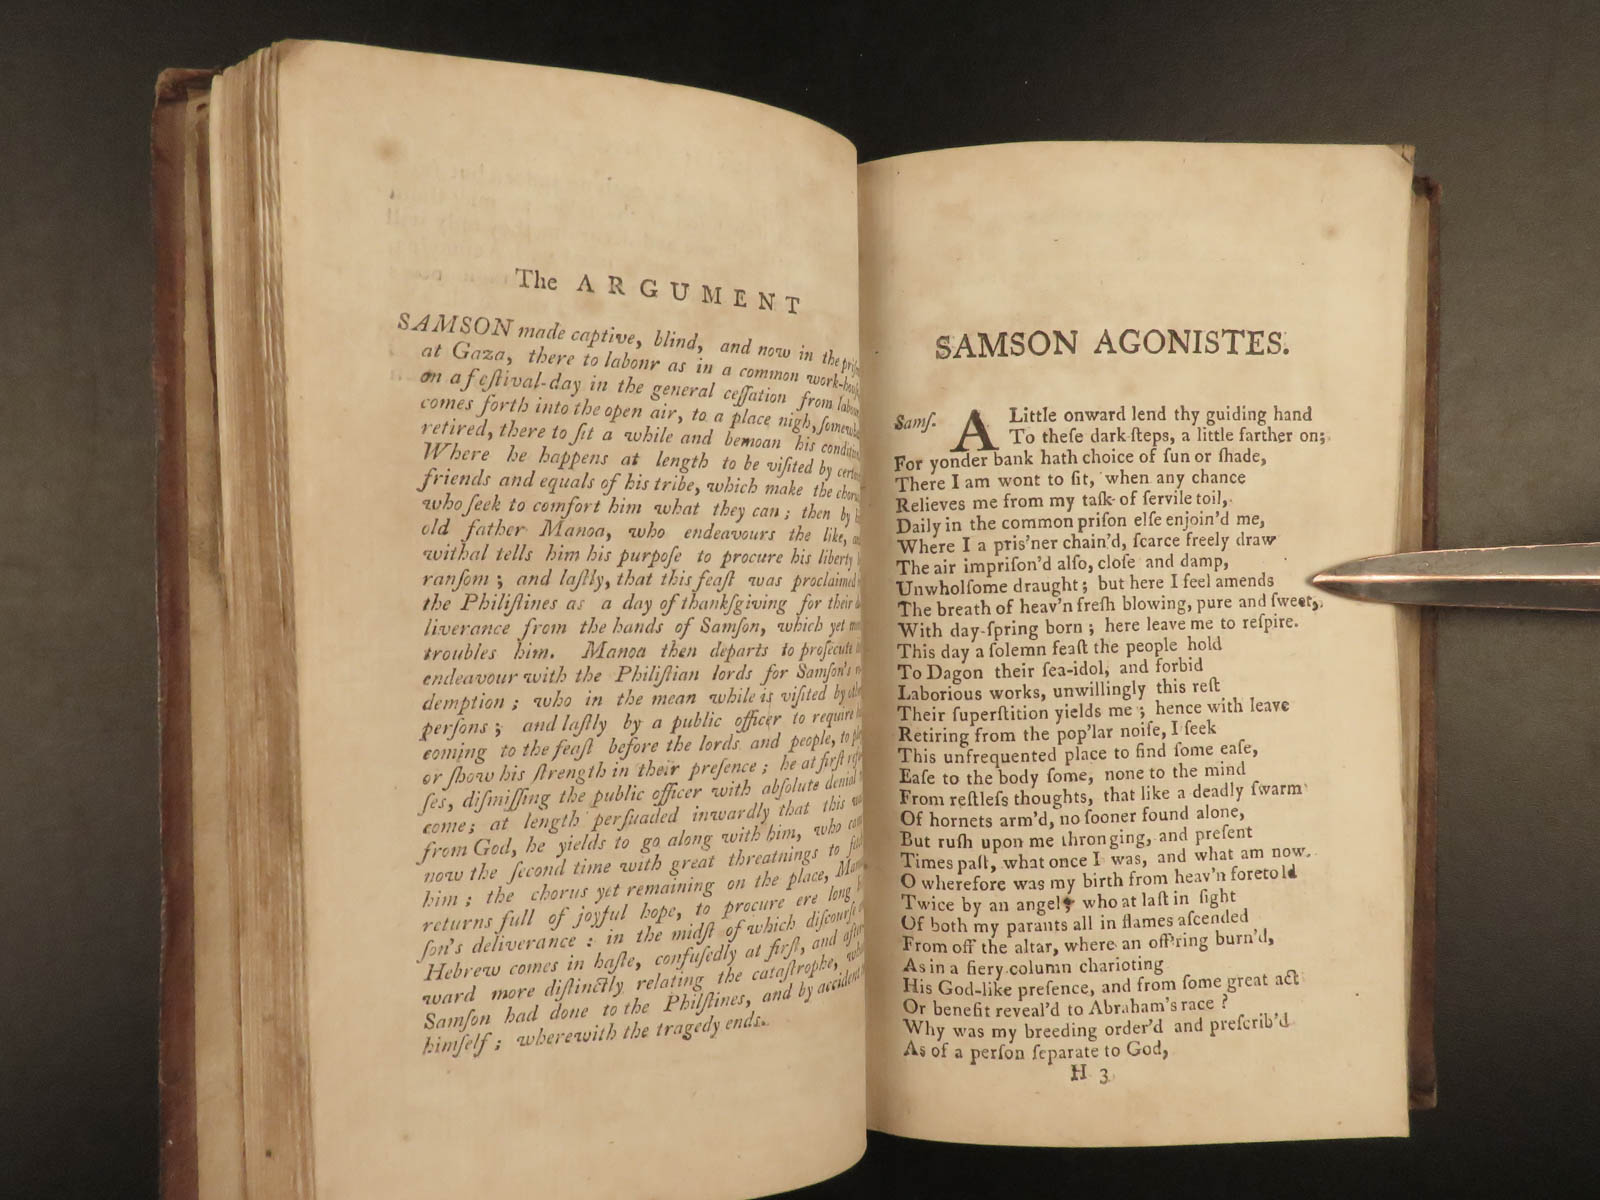 The ARGUMENT
SAMSON made captive, blind, and now in the priſ
at Gaza, there to labonr as in a common work-houſ
on a feſtival-day in the general ceſſation from labou
comes forth into the open air, to a place nigh, ſomewha
retired, there to ſit a while and bemoan his conditi
Where he happens at length to be viſited by certa
friends and equals of his tribe, which make the choru
who ſeek to comfort him what they can; then by h
old father Manoa, who endeavours the like, an
withal tells him his purpoſe to procure his liberty b
ranſom; and laſtly, that this feaſt was proclaimed
the Philiſtines as a day of thankſgiving for their de
liverance from the hands of Samſon, which yet mo
troubles him. Manoa then departs to proſecute
endeavour with the Philiſtian lords for Samſon's re
demption; who in the mean while is viſited by oth
perſons; and laſtly by a public officer to require h
coming to the feaſt before the lords and people, to pl
or ſhow his ſtrength in their preſence; he at firſt refu
ſes, diſmiſſing the public officer with abſolute denial
come; at length perſuaded inwardly that this wa
from God, he yields to go along with him, who cam
now the ſecond time with great threatnings to fetch
him; the chorus yet remaining on the place, Mano
returns full of joyful hope, to procure ere long
ſon's deliverance: in the midſt of which diſcourſe
Hebrew comes in haſte, confuſedly at firſt, and after
ward more diſtinctly relating the cataſtrophe, wha
Samſon had done to the Philſtines, and by accident
himſelf; wherewith the tragedy ends.
SAMSON AGONISTES.
Samſ. A Little onward lend thy guiding hand
To theſe dark ſteps, a little farther on;
For yonder bank hath choice of ſun or ſhade,
There I am wont to ſit, when any chance
Relieves me from my taſk of ſervile toil,
Daily in the common priſon elſe enjoin'd me,
Where I a pris'ner chain'd, ſcarce freely draw
The air impriſon'd alſo, cloſe and damp,
Unwholſome draught; but here I feel amends
The breath of heav'n freſh blowing, pure and ſweet,
With day-ſpring born; here leave me to reſpire.
This day a ſolemn feaſt the people hold
To Dagon their ſea-idol, and forbid
Laborious works, unwillingly this reſt
Their ſuperſtition yields me; hence with leave
Retiring from the pop'lar noiſe, I ſeek
This unfrequented place to find ſome eaſe,
Eaſe to the body ſome, none to the mind
From reſtleſs thoughts, that like a deadly ſwarm
Of hornets arm'd, no ſooner found alone,
But ruſh upon me thronging, and preſent
Times paſt, what once I was, and what am now.
O wherefore was my birth from heav'n foretold
Twice by an angel, who at laſt in ſight
Of both my parants all in flames aſcended
From off the altar, where an off'ring burn'd,
As in a fiery column charioting
His God-like preſence, and from ſome great act
Or benefit reveal'd to Abraham's race?
Why was my breeding order'd and preſcrib'd
As of a perſon ſeparate to God,
H 3